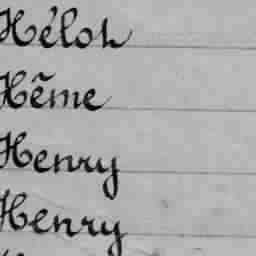 Héloh
Hẽme
Henry
Henry